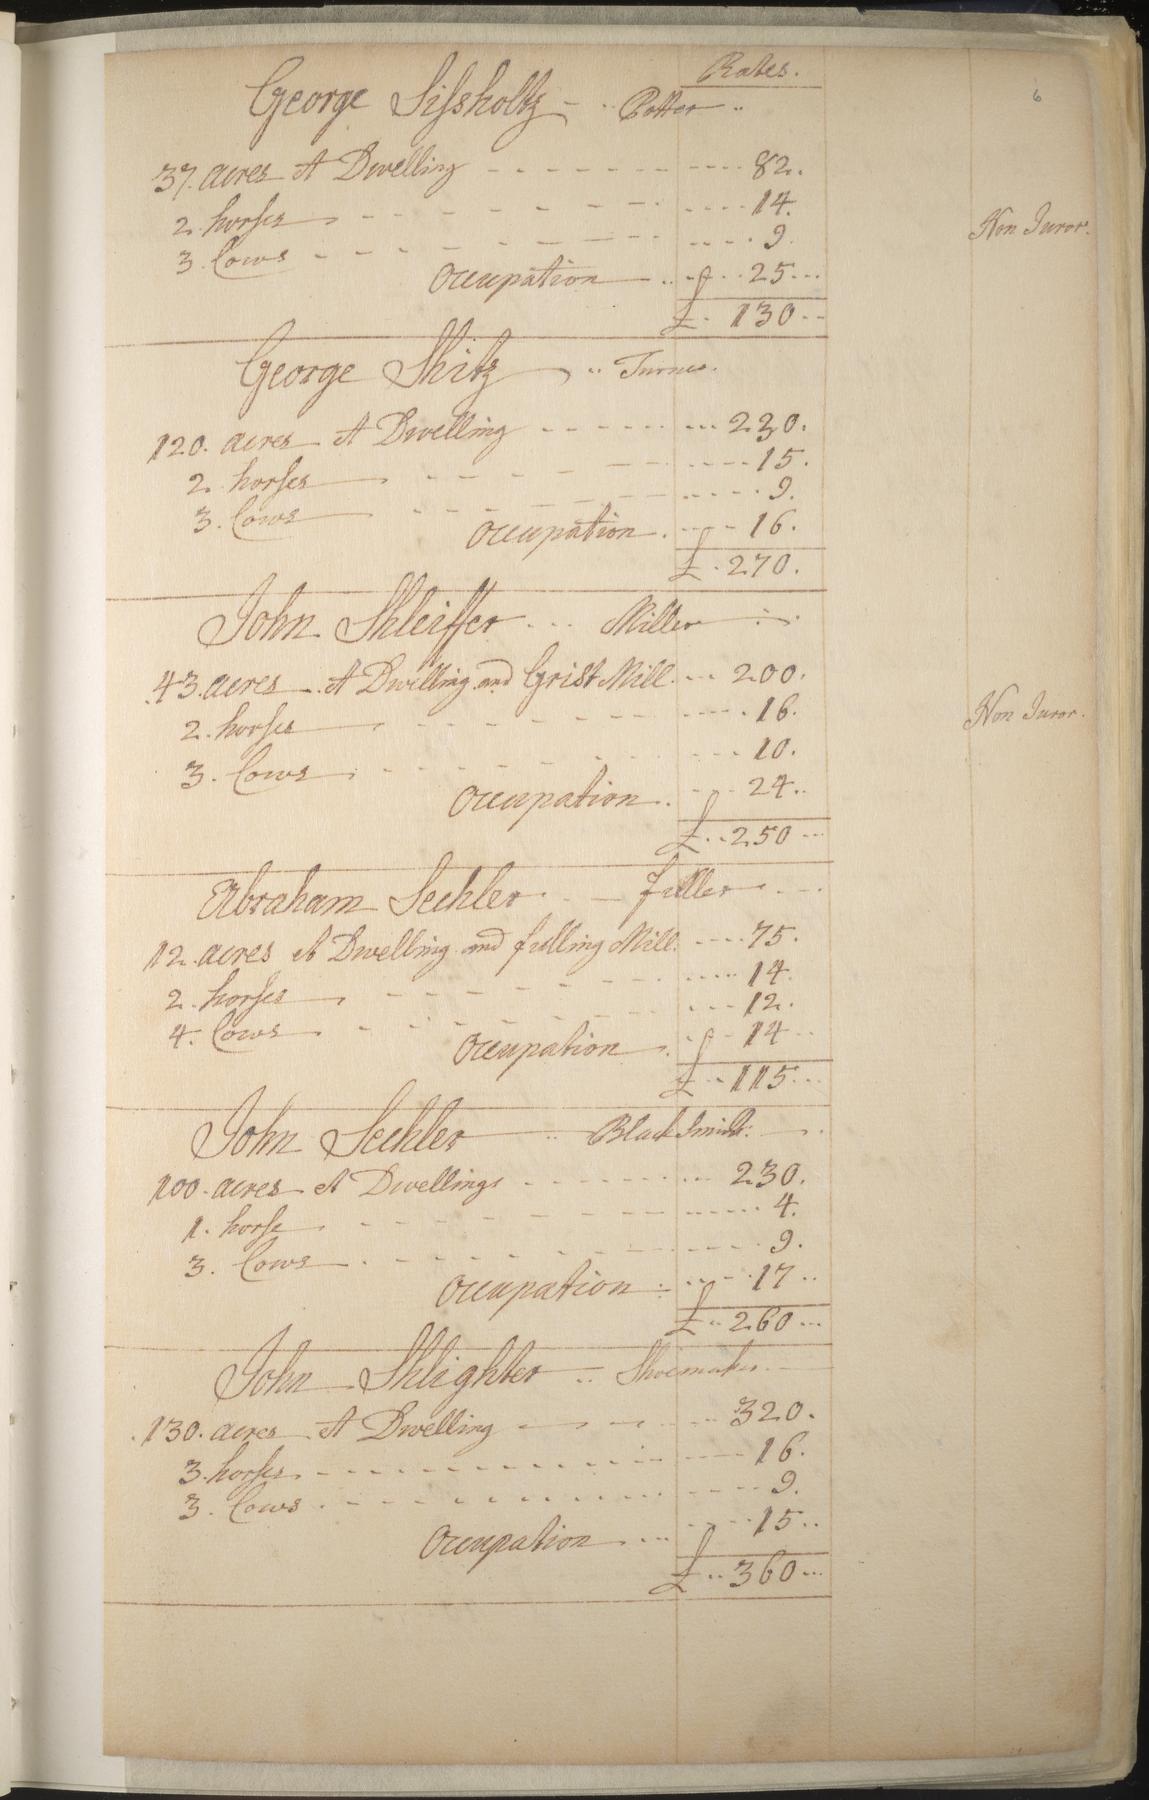 Rates.
6
George Sissholtz - Potter
37. acres A Dwelling 82.
2. horses 14.
3. Cows 9.
Non Juror.
Occupation 25
£ 130
George Shitz Turner.
120. acres A Dwelling 230.
2. horses 15.
3. Cows 9.
Occupation. 16.
£ 270.
John Shleiffer Miller
43. acres A Dwelling and Grist Mill. 200.
2. horses 16.
Non Juror.
3. Cows 10.
Occupation. 24.
£ 250
Abraham Sechler fuller
12. acres A Dwelling and fulling Mill. 75.
2. horses 14.
4. Cows 12.
Occupation. 14
£ 115
John Sechler Black Smith.
100. acres A Dwellings 230.
1. horse 4.
3. Cows 9.
Occupation 17
£ 260
John Shlighter Shoemaker.
130. acres A Dwelling 320.
3. horses 16.
3. Cows 9.
Occupation 15
£ 360